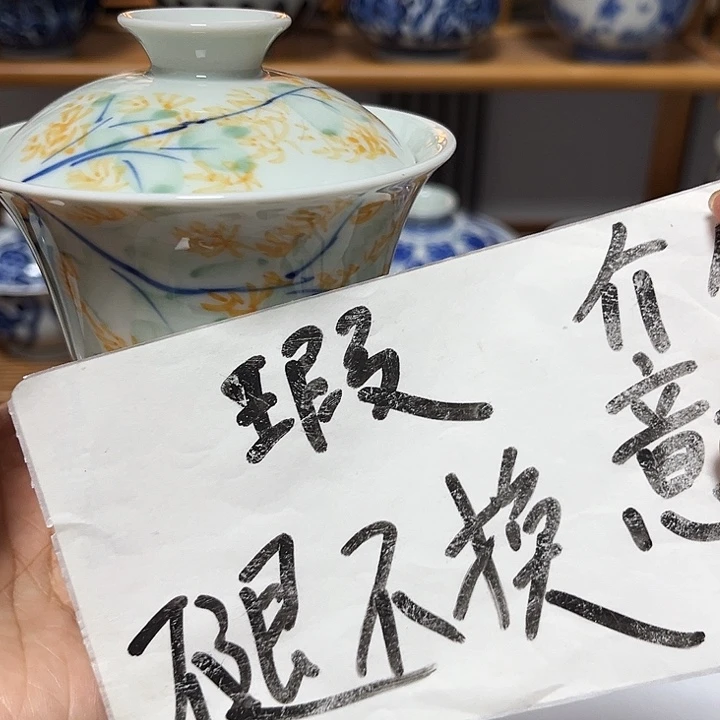 瑕
不退不换
介意